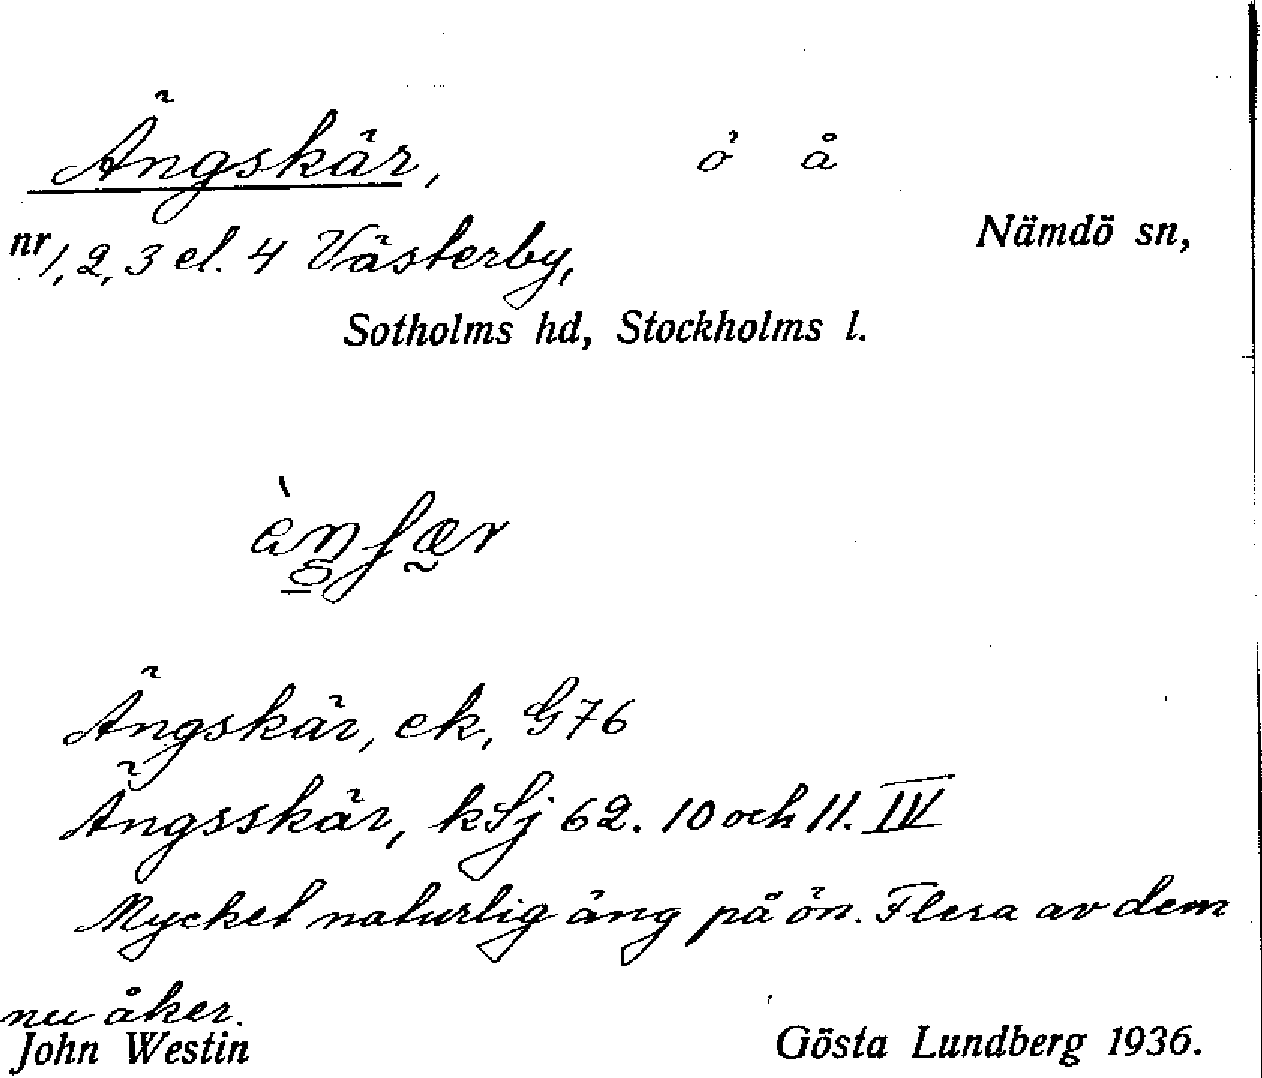 Ängskär, ö å
nr 1, 2, 3 el. 4 Västerby, Nämdö sn,
Sotholms hd, Stockholms l.
Ängskär, ek, G76
Ängsskär, kSj 62. 10 och 11. IV
Mycket naturlig äng på ön. Flera av dem
nu åker.
John Westin Gösta Lundberg 1936.